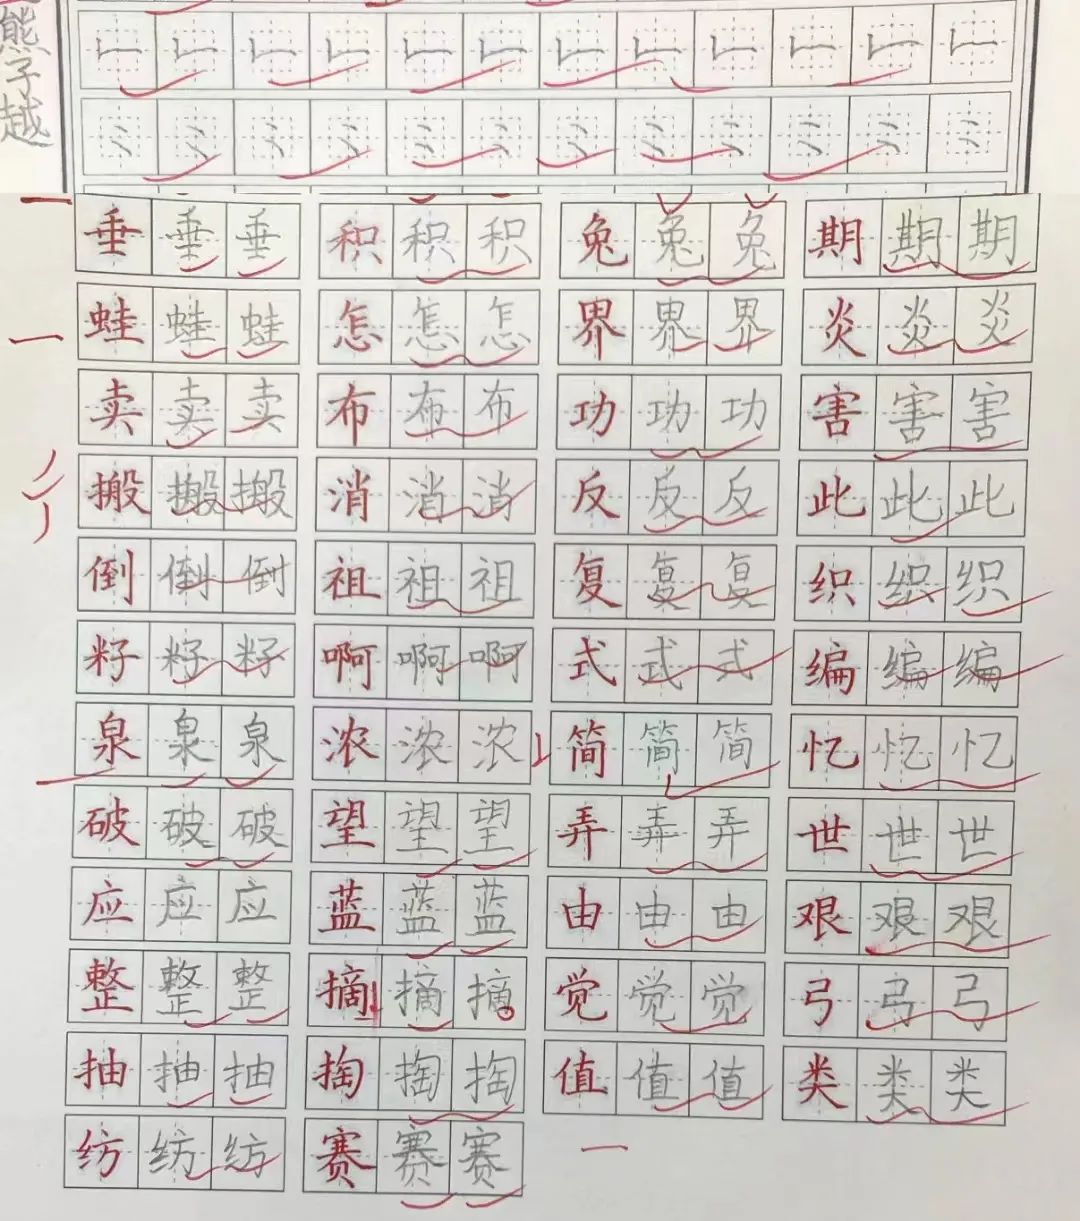 熊子越
垂垂垂 积积积 兔兔兔 期期期
蛙蛙蛙 怎怎怎 界界界 炎炎炎
卖卖卖 布布布 功功功 害害害
搬搬搬 消消消 反反反 此此此
倒倒倒 祖祖祖 复复复 织织织
籽籽籽 啊啊啊 式式式 编编编
泉泉泉 浓浓浓 简简简 忆忆忆
破破破 望望望 弄弄弄 世世世
应应应 蓝蓝蓝 由由由 艰艰艰
整整整 摘摘摘 觉觉觉 弓弓弓
抽抽抽 掏掏掏 值值值 类类类
纺纺纺 赛赛赛